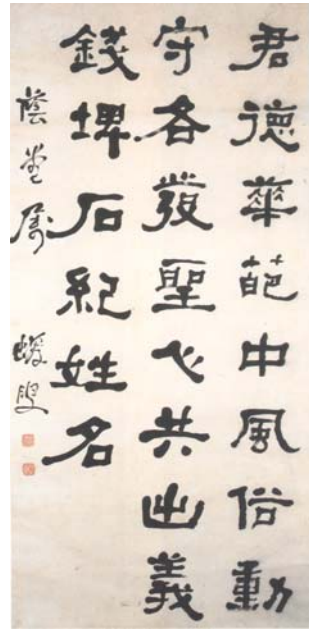 君德華葩中風俗動
守各發聖心共出義
錢埤石紀姓名
蔭堂屬 蝯叟